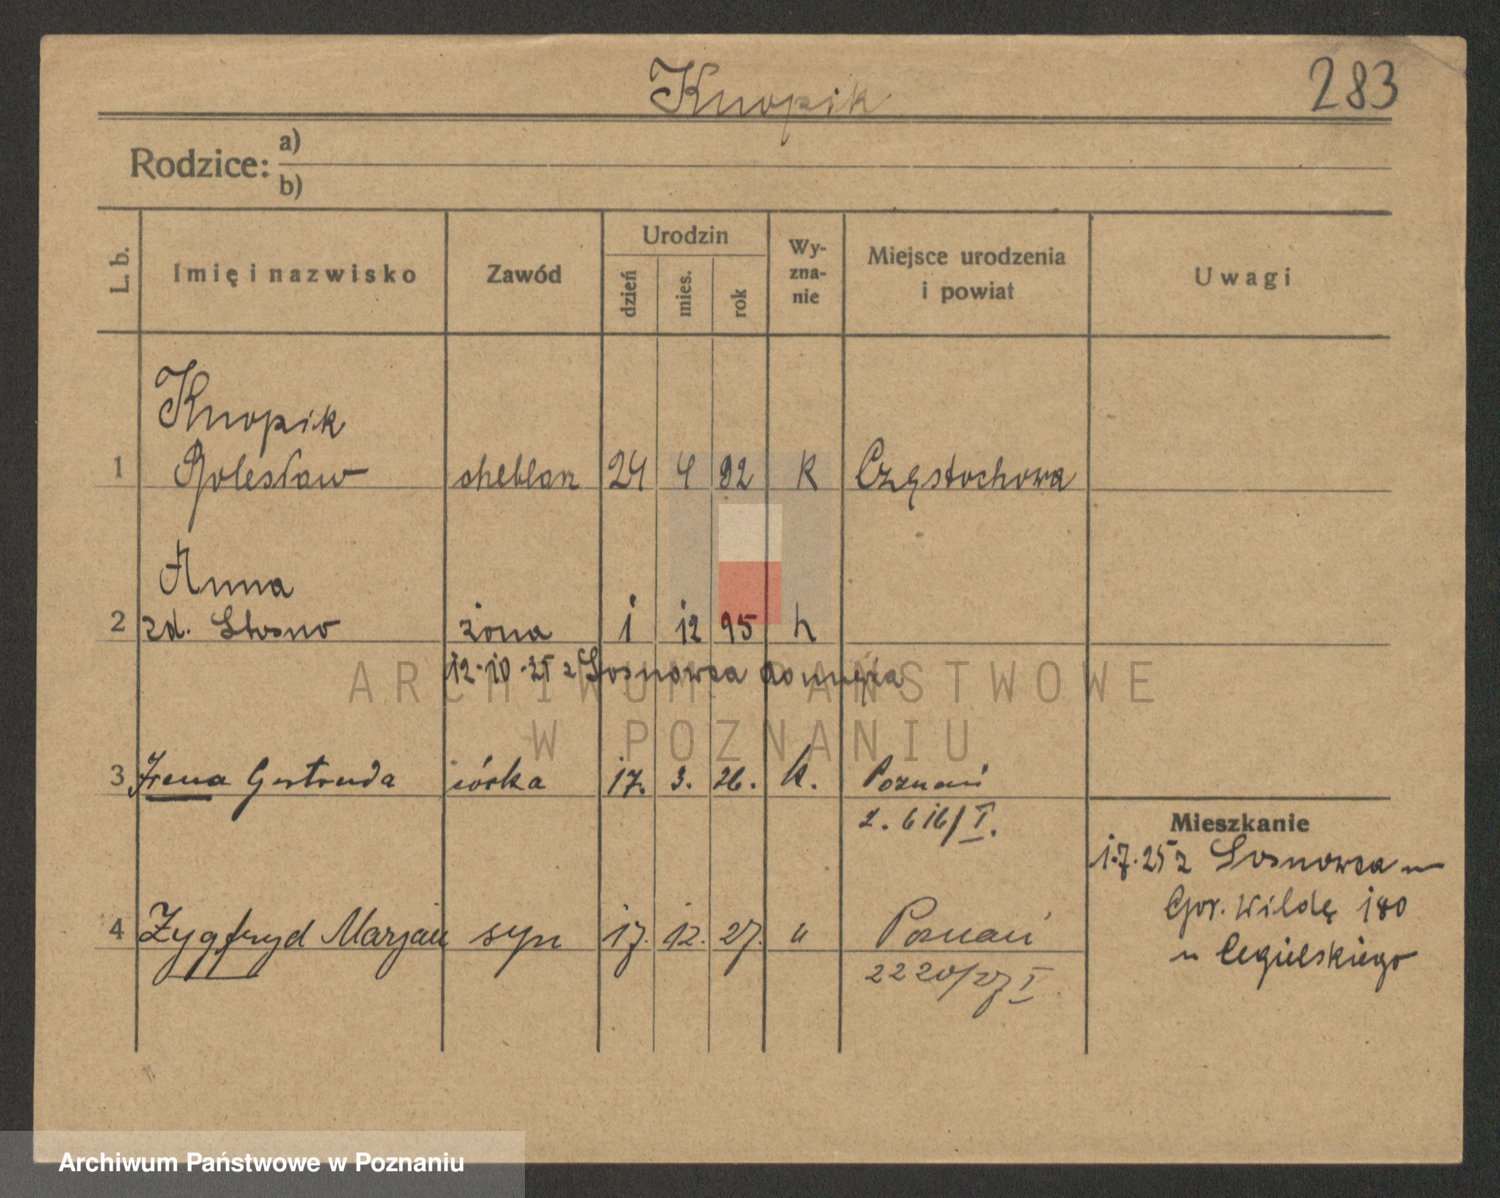 Knopik
283
Rodzice: a)
b)
L. b.
Imię i nazwisko
Zawód
Urodzin
dzień
mies.
rok
Wy-
zna-
nie
Miejsce urodzenia
i powiat
Uwagi
Knopik
1 Bolesław 24 4 92 K Częstochowa
Anna
2 zd. żona 1 12 95 k
12.10.25 z Sosnowca do męża
3 Irena Gertruda córka 17. 3. 26. k. Poznań
2. 616/I.
4 Zygfryd Marjan syn 17. 12. 27. " Poznań
2220/27 I
Mieszkanie
1.7.25 z Sosnowca
Gór. Wildę 180
u Cegielskiego
ARCHIWUM PAŃSTWOWE
W POZNANIU
Archiwum Państwowe w Poznaniu